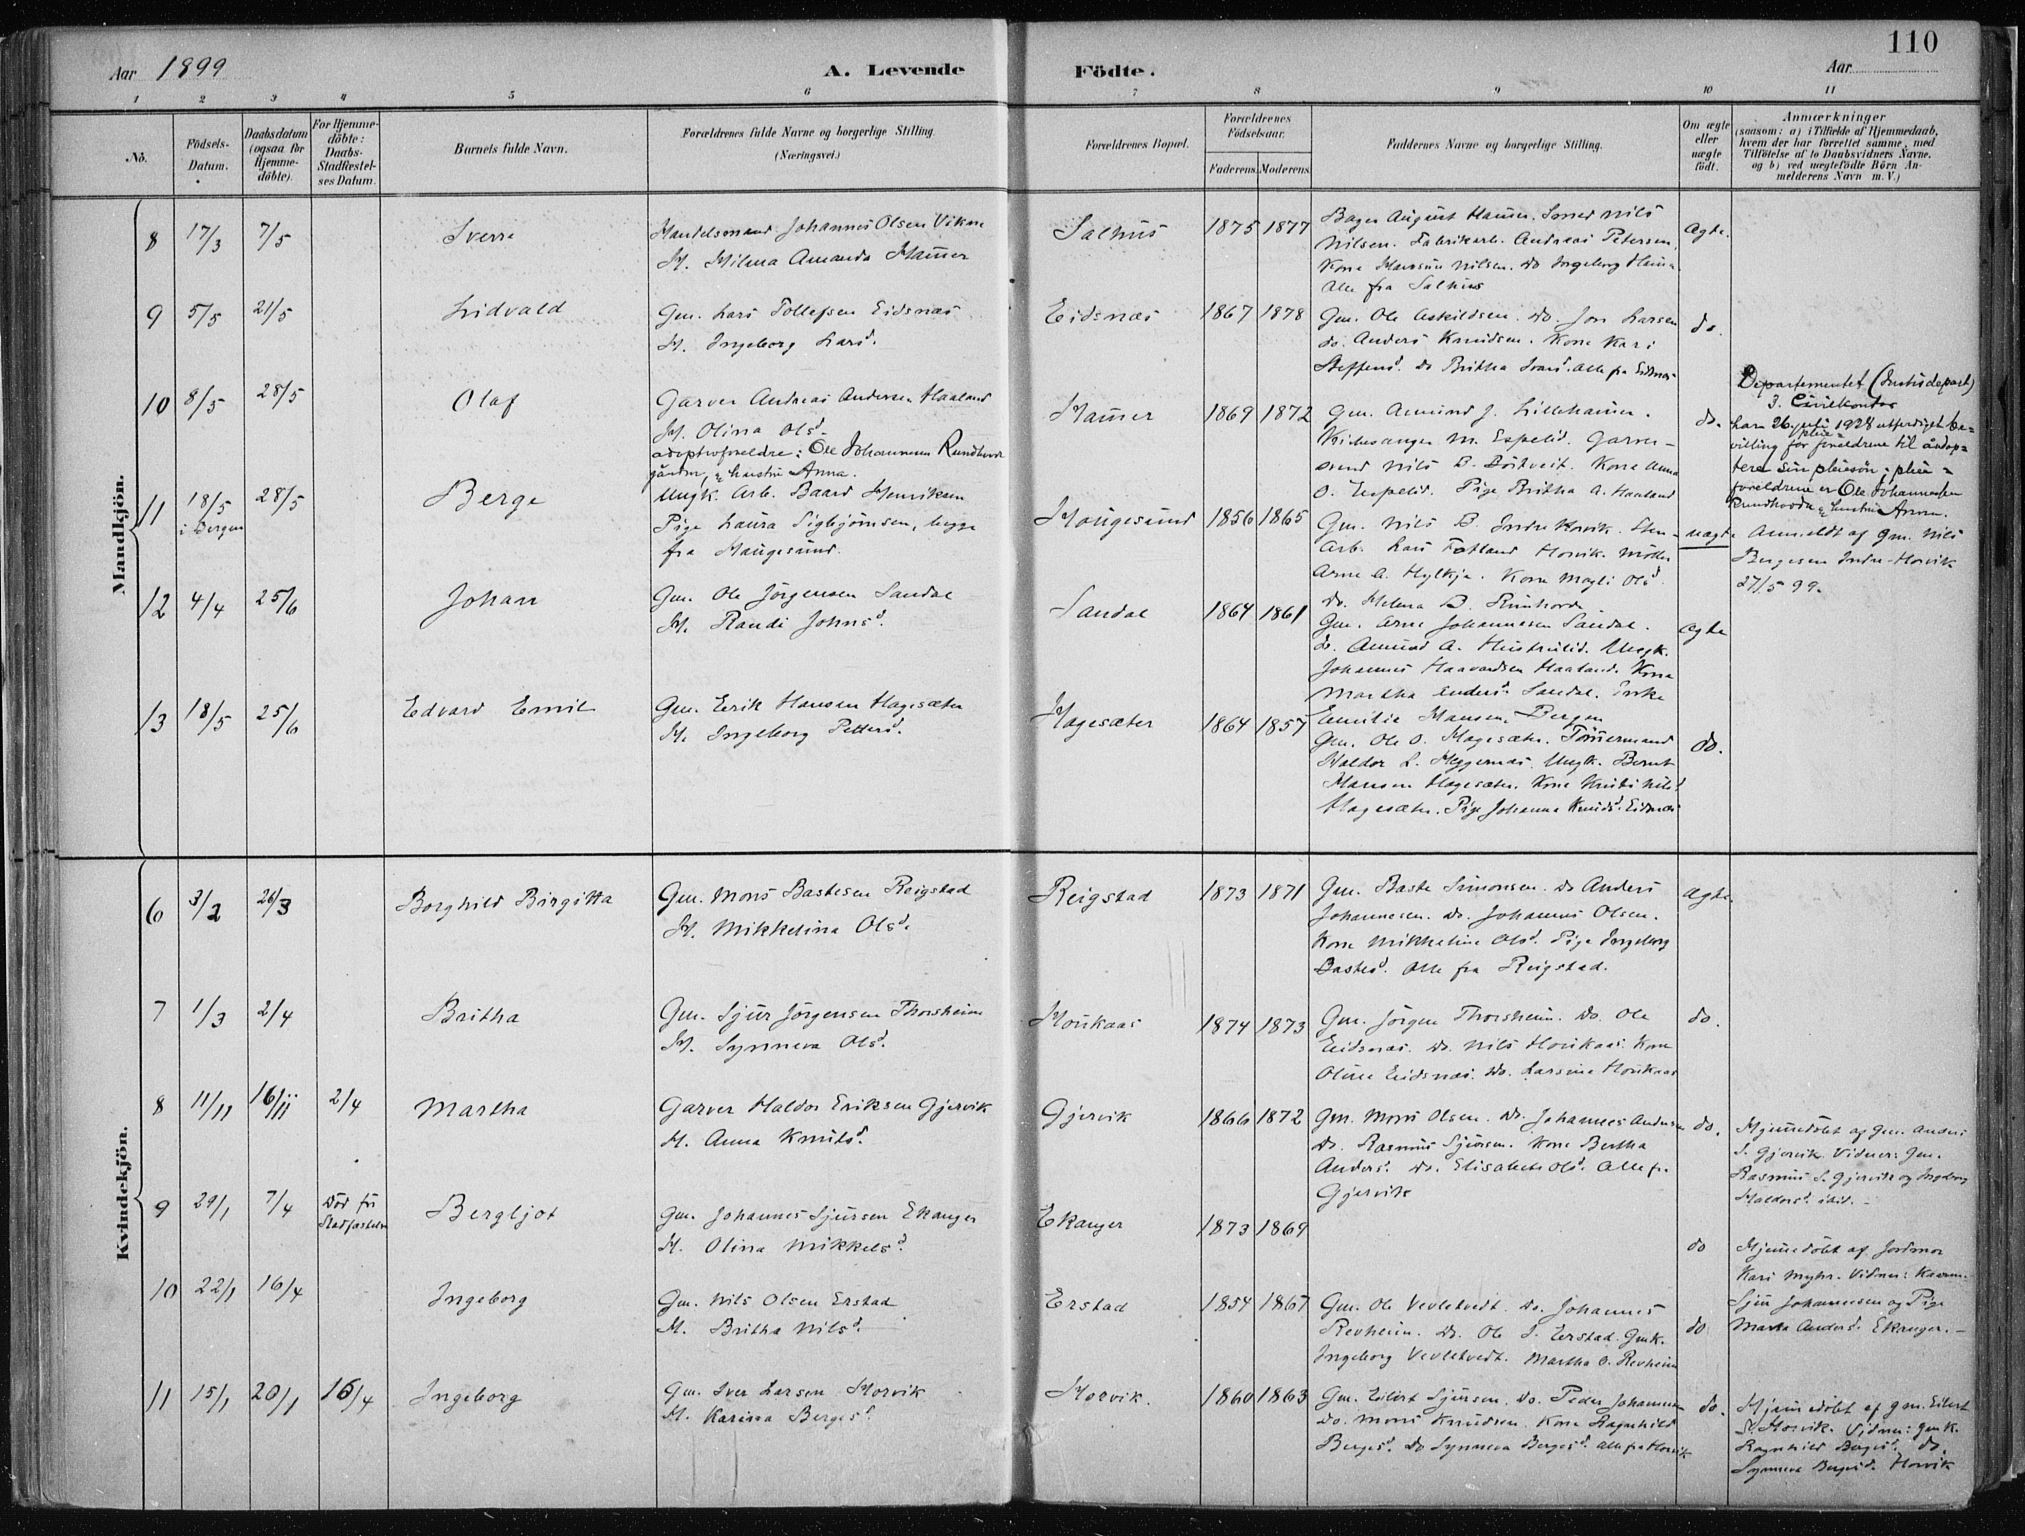 110
Aar 1899
A. Levende Födte.
Aar
1 2 3 4 5 6 7 8 9 10 11
No.
Födsels-Datum.
Daabsdatum (ogsaa for Hjemme-döbte).
For Hjemme-döbte: Daabs-Stadfæstel-ses Datum.
Barnets fulde Navn.
Forældrenes fulde Navne og borgerlige Stilling. (Næringsvei.)
Forældrenes Bopæl.
Forældrenes Födselsaar.
Faderens. Moderens.
Faddernes Navne og borgerlige Stilling.
Om ægte eller uægte födt.
Anmærkninger
(saasom: a) i Tilfælde af Hjemmedaab,
hvem der har forrettet samme, med
Tilföielse af to Daabsvidners Navne,
og b) ved uægtefödte Börn An-
melderens Navn m. V.)
Mandkjön.
8 17/3 7/5 Sverre
Handelsmand Johannes Olsen Vikne
H. Hilma Amanda Hamer
Salhus 1875 1877
Bager August Hamer. Smed Nils
Nilsen. Fabrikarb. Andreas Petersen.
Kone Nilsen. do Ingeborg
Alle fra Salhus
ægte.
9 5/5 21/5 Lidvald
Gm. Lars Tollefsen Eidsnæs
H. Ingeborg Larsd.
Eidsnæs 1867 1878
Gm. Ole Askildsen. do. Jon Larsen
do. Anders Knudsen. Kone Kari
Steffensd. do Britha Ivarsd. Alle fra Eidsnæs
do.
10 8/5 28/5 Olaf
Garver Andreas Andersen Haaland
H. Olina Olsd.
adoptivforeldre: Ole Johannesen Rundhovde
gårdbr., og hustru Anna.
Hamer 1869 1872
Gm. Amund J. Lillehamer.
Kirkesanger M. Espelid. Garver-
svend Nils B. Börtveit. Kone Anna
O. Espelid. Pige Britha A. Haaland
do.
Departementet (Justisdepart)
3. Civilkontor
har 26 juli 1928 utferdiget be-
villing for pleie-foreldrene til å adop-
tere sin pleiesön; pleie-
foreldrene er Ole Johannesen
Rundhovde og hustru Anna.
11 18/5 i Bergen 28/5 Berge
Ungk. Arb. Baard Henriksen
Pige Laura Sigbjörnsen, begge
fra Haugesund.
Haugesund 1856 1865
Gm. Nils B. Indre Horvik. Sten-
arb. Lars Fotland Horvik. Möller
Arne A. Hylkje. Kone Magli Olsd.
do. Helena B. Rundhovde
uægte
Anmeldt af gm. Nils
Bergesen Indre-Horvik
27/5 99.
12 4/4 25/6 Johan
Gm. Ole Jörgensen Sandal
H. Randi Johnsd.
Sandal 1864 1861
Gm. Arne Johannesen Sandal.
do. Amund A. Hustrulid. Ungk.
Johannes Haavardsen Haaland. Kone
Martha Andersd. Sandal. Enke
Emilie Hansen Bergen
ægte
13 18/5 25/6 Edvard Emil
Gm. Erik Hansen Hagesæter
H. Ingeborg Pettersd.
Hagesæter 1864 1857
Gm. Ole O. Hagesæter. Tömmermand
Haldor L. Heggernæs. Ungk. Bernt
Hansen Hagesæter. Kone Nilsd.
Hagesæter. Pige Johanna Knudsd. Eidsnæs
do.
Kvindekjön.
6 3/2 26/3 Borghild Birgitta
Gm. Mons Bastesen Reigstad
H. Mikkelina Olsd.
Reigstad 1873 1871
Gm. Baste Simonsen. do Anders
Johannesen. do. Johannes Olsen.
Kone Mikkeline Olsd. Pige Ingeborg
Bastesd. Alle fra Reigstad.
ægte.
7 1/3 2/4 Britha
Gm. Sjur Jörgensen Thorsheim
H. Synneva Olsd.
Houkaas 1874 1873
Gm. Jörgen Thorsheim. do. Ole
Eidsnæs. do. Nils Houkaas. Kone
Oline Eidsnæs. do. Larsine Houkaas
do.
8 11/11 16/11 2/4 Martha
Garver Haldor Eriksen Gjervik
H. Anna Knutsd.
Gjervik 1866 1872
Gm. Mons Olsen. do. Johannes Andersen
do. Rasmus Sjursen. Kone Bertha
Andersd. do. Elisabeth Olsd. Alle fra
Gjervik
do.
Hjemmedöbt af gm. Anders
S. Gjervik. Vidner: Gm.
Rasmus S. Gjervik og Ingeborg
Haldorsd. ibid. -
9 29/1 7/4 Död för Stadfæstelsen Bergljot
Gm. Johannes Sjursen Ekanger
H. Olina Mikkelsd.
Ekanger 1873 1869
do
Hjemmedöbt af Jordmor
Kari Myhr. Vidner: Kaarm.
Sjur Johannesen og Pige
Marta Andersd. Ekanger. -
10 22/1 16/4 Ingeborg
Gm. Nils Olsen Erstad
H. Britha Nilsd.
Erstad 1854 1867
Gm. Ole Vevletvedt. do. Johannes
Revheim. do. Ole S. Erstad. Gmk.
Ingeborg Vevletvedt. Martha O. Revheim
do
11 15/1 20/1 16/4 Ingeborg
Gm. Iver Larsen Horvik
H. Karina Bergesd.
Horvik. 1860 1863
Gm. Eilert Sjursen. do. Peder Johannesen
do. Mons Knudsen. Kone Ragnhild
Bergesd. do Synneva Bergesd. Alle fra Horvik
do.
Hjemmedöbt af gm. Eilert
S. Horvik. Vidner: Gmk.
Ragnhild Bergesd. do.
Synneva Bergesd. Horvik